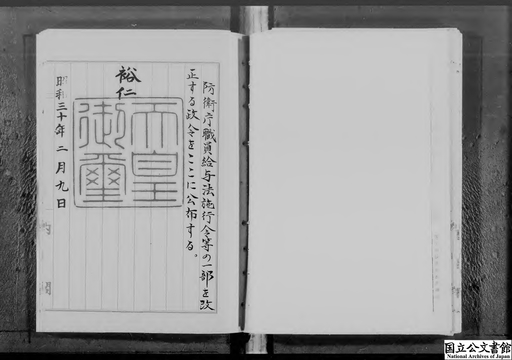 防衛庁職員給与法施行令等の一部を改
正する政令をここに公布する。
裕仁
天皇
御璽
昭和三十年二月九日
国立公文書館
National Archives of Japan